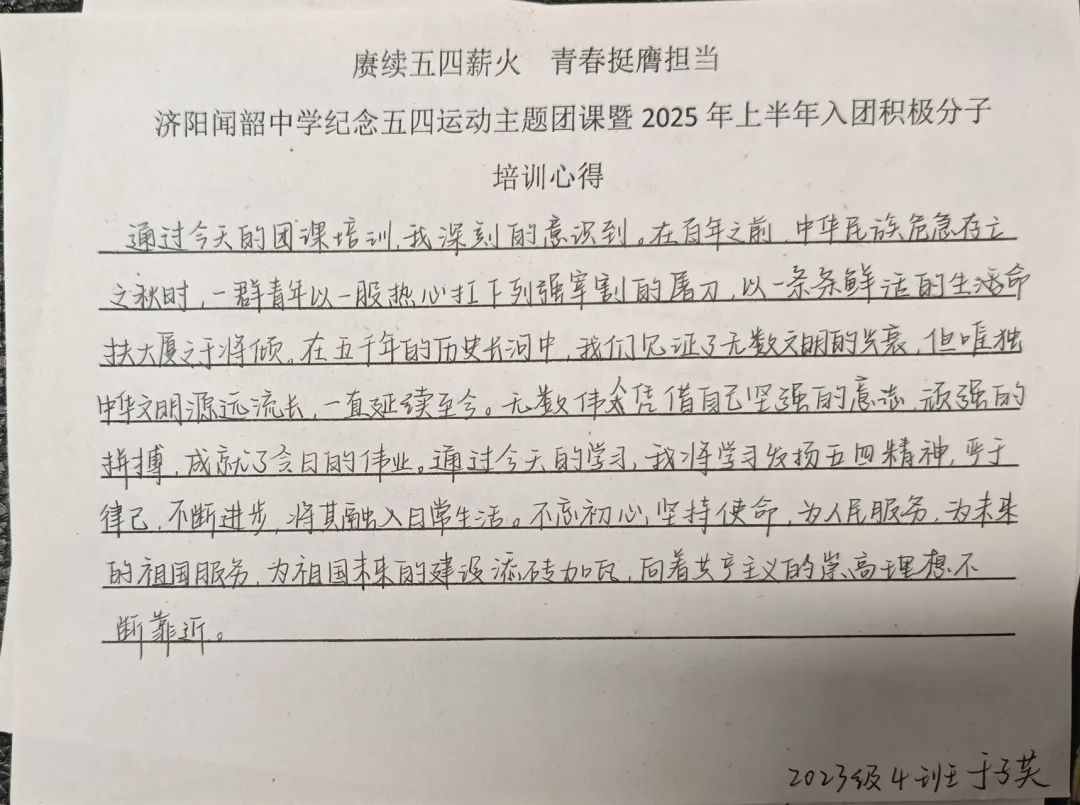 赓续五四薪火 青春挺膺担当
济阳闻韶中学纪念五四运动主题团课暨 2025 年上半年入团积极分子
培训心得
通过今天的团课培训,我深刻的意识到。在百年之前,中华民族危急存亡
之秋时,一群青年以一股热心扛下列强宰割的屠刀,以一条条鲜活的生活命
扶大厦之于将倾。在五千年的历史长河中,我们见证了无数文明的兴衰,但唯独
中华文明源远流长,一直延续至今。无数伟人凭借自己坚强的意志,顽强的
拼搏,成就了今日的伟业。通过今天的学习,我将学习发扬五四精神,严于
律己,不断进步,将其融入日常生活。不忘初心,坚持使命,为人民服务,为未来
的祖国服务,为祖国未来的建设添砖加瓦,向着共产主义的崇高理想不
断靠近。
2023级4班于子英